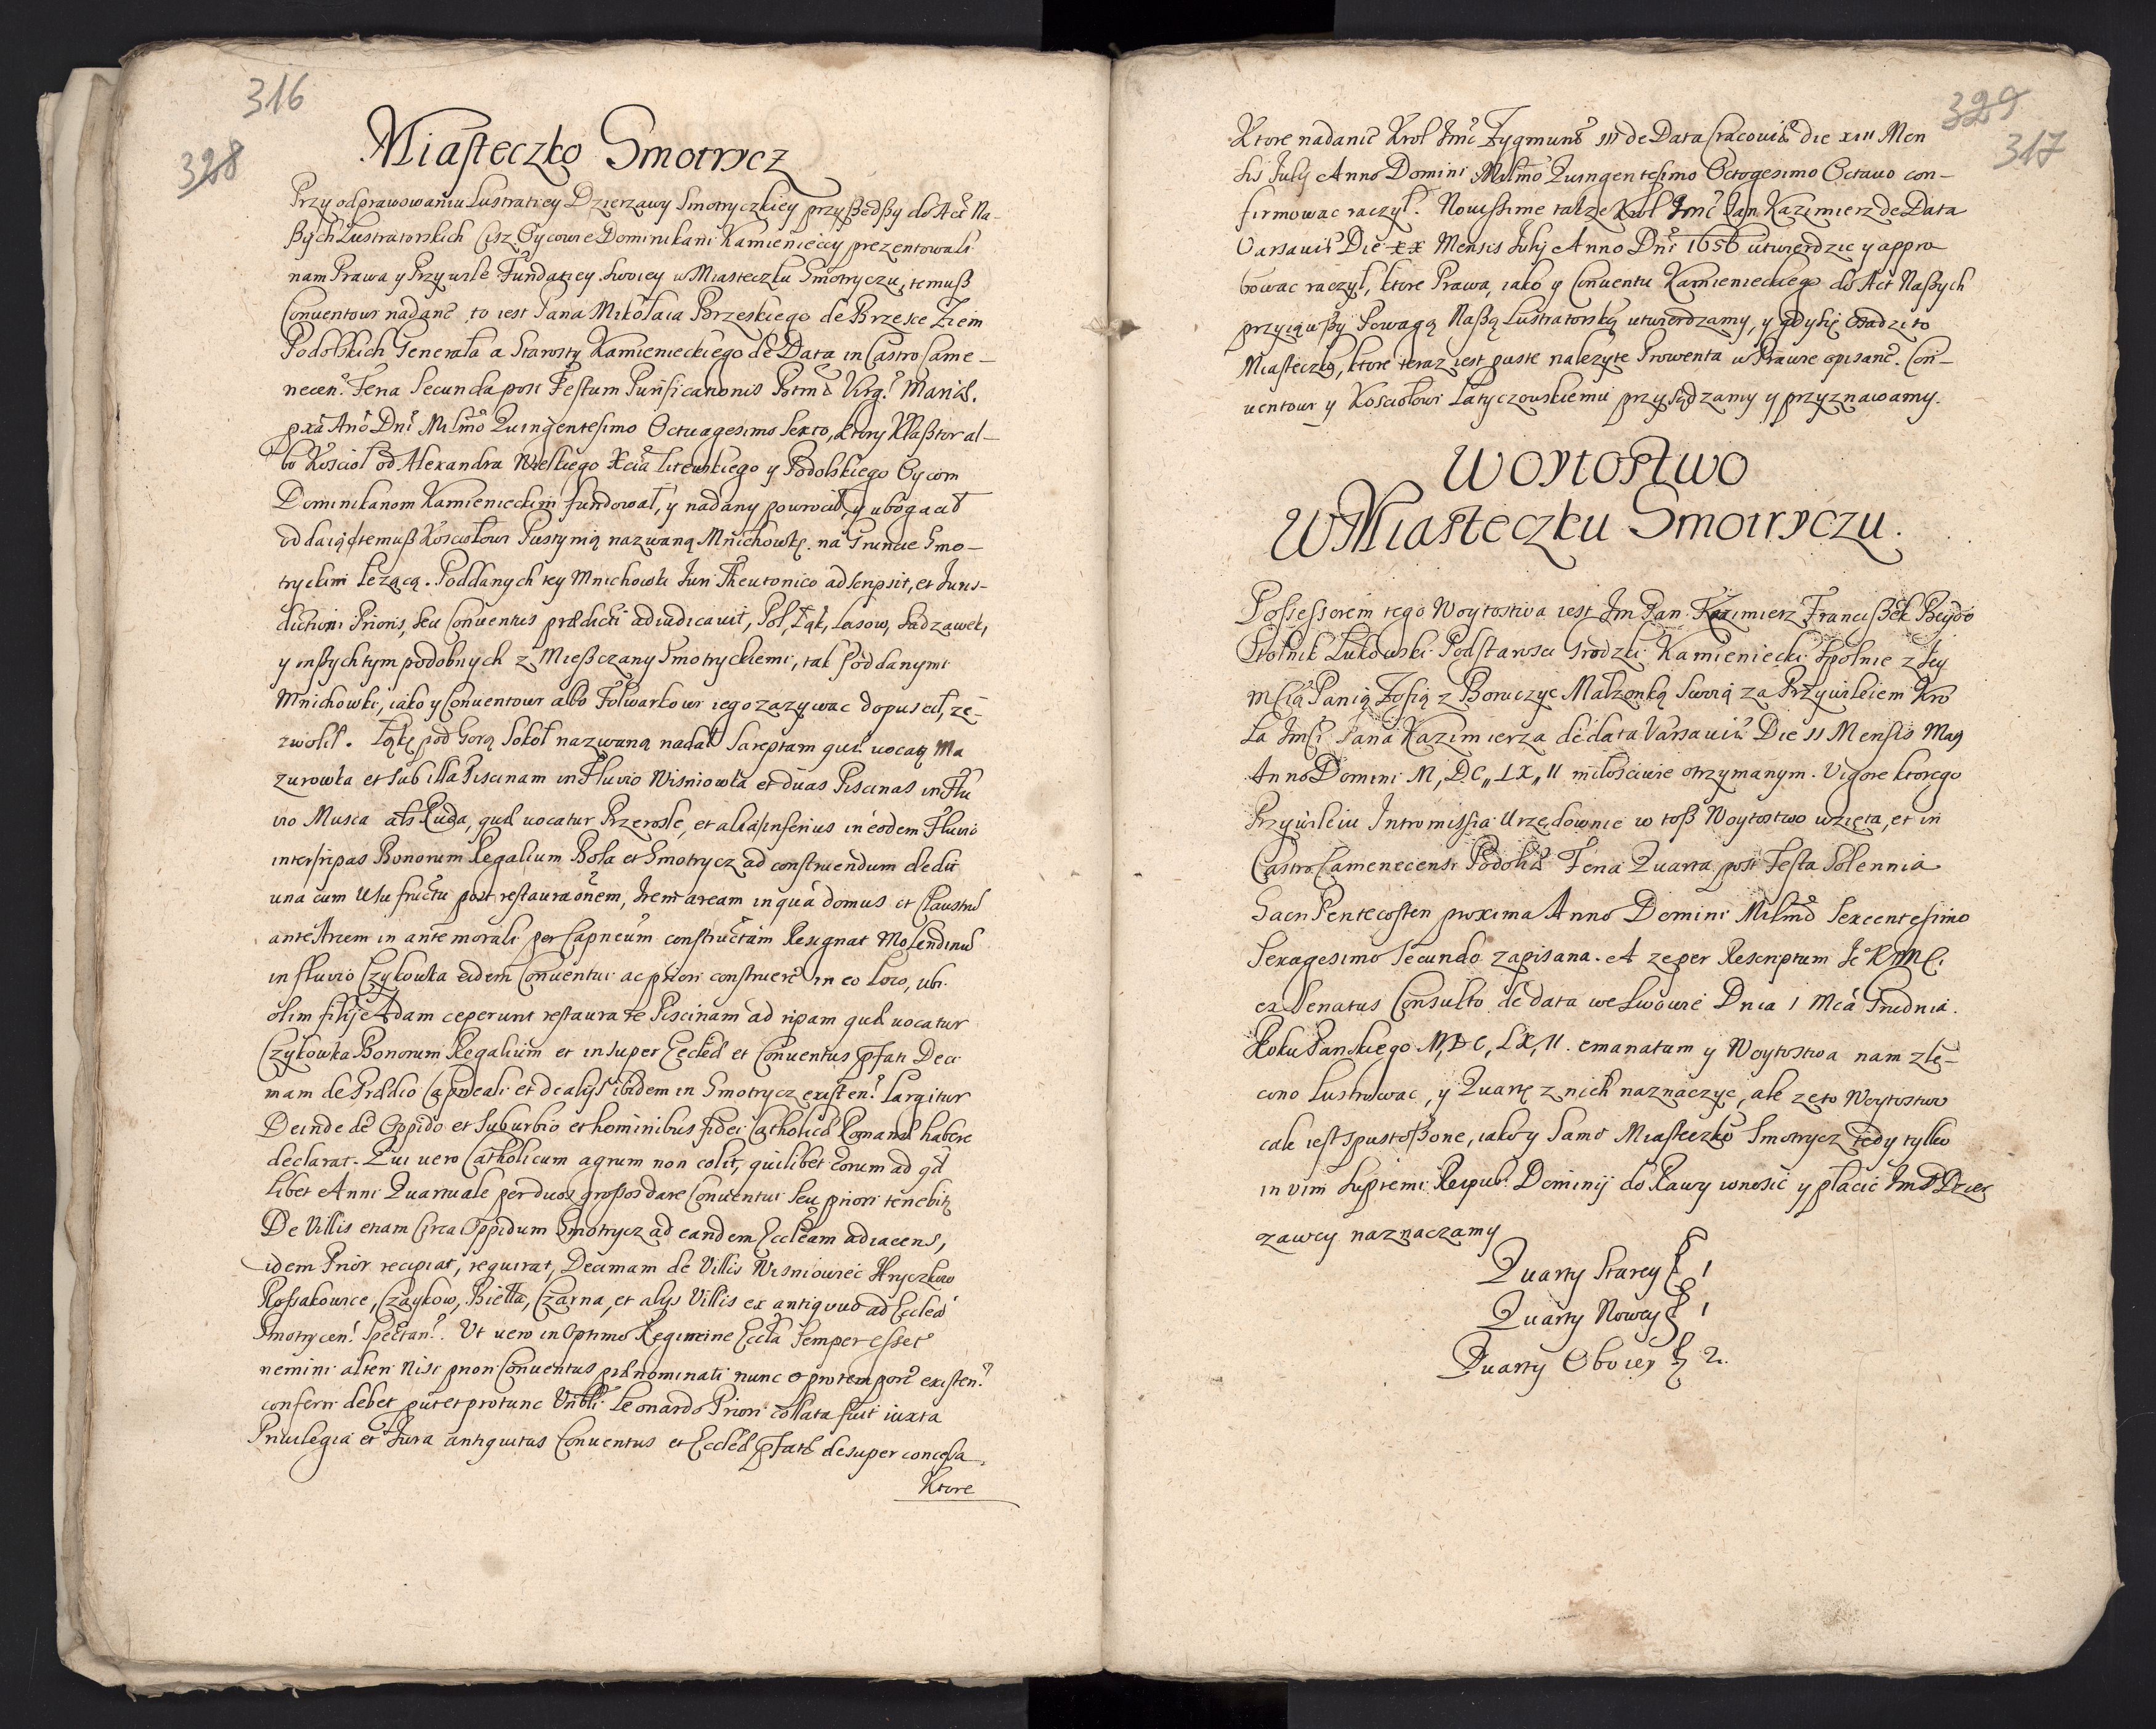 316
328
Miasteczko Smotrycz
Przy odprawowaniu Lustratiey Dzierzawy Smotryczkiey przyszedszy do Act Na-
szych Lustratorskich Oycowie Dominikani Kamienieccy prezentowali
nam Prawa y Przywile Fundatiey Swoiey w Miasteczku Smotryczu, temusz
Conuentowi nadane to iest Pana Mikołaia Brzeskiego de Brzezie Ziem
Podolskich Generała a Starosty Kamienieckiego de Data in Castro Came-
necen. Feria Secunda post Festum Purificationis Bttmæ Virg. Mariæ.
pxa Ano Dni Milmo Quingentesimo Octuagesimo Sexto, ktory Klasztor al-
bo Koscioł od Alexandra Wielkiego Xcia Litewskiego y Podolskiego Oycom
Dominikanom Kamienieckim fundował, y nadany powrocił, y ubogacił
oddaiąc temusz Koscołowi Pustynią nazwaną Mnichowkę na Gruncie Smo-
tryckim lezącą. Poddanych tey Mnichowki Juri Theutonico adscripsit, et Juris-
dictioni Prioris, seu Conuentus prædicti adiudicauit, Pol, Łąk, Lasow, Sadzawek,
y inszych tym podobnych z Mieszczany Smotryckiemi, tak Poddanymi
Mnichowki, iako y Conuentowi albo Folwarkowi iego zazywac dopuscił, ze-
zwolił. Łąkę pod Gorą Sokoł nazwaną nadał Sareptam quæ uocatq Ma
zurowka et sub illa Piscinam in Fluvio Wisniowka et duas Piscinas in Flu
vio Musca als Ruda, quæ uocatur Przerosle, et alia inferius in eodem Fluvio
inter ripas Bonorum Regalium Bola et Smotrycz ad construendum dedit
una cum Usu fructu post restauraonem, Item aream in qua domus et Claustrũ
ante Arcem in ante morali per Capneum constructam Resignat Molendinũ
in fluvio Czykowka eidem Conuentui ac priori construere in eo Loco, ubi
olim filij Adam ceperunt restaurare Piscinam ad ripam quæ uocatur
Czykowka Bonorum Regalium et insuper Eccliæ et Conuentus pfati Deci
mam de Prædio Capneali et de alijs ibidem in Smotrycz existen. Largitur
Deinde de Oppido et Suburbio et hominibus fidei Catholicæ Romanæ habere
declarat. Qui uero Catholicum agrum non colit, quilibet eorum ad qd
libet Anni Quartuale per duos grossos dare Conuentui seu priori tenebitq
De Villis etiam Circa Oppidum Smotrycz ad eandem Eccleam adiacens,
idem Prior recipiat, requirat, Decimam de Villis Wisniowiec Hryczkow
Rossakowce, Czaykow, Bielła, Czarna, et alys Villis ex antiquo ad Eccleã
Smotrycen. Spectan. Ut uero in Optimo Regimine Eccla semper esset
nemini alteri nisi priori Conuentus prænominati nunc et pro tempore existen.
conferri debet put et pro tunc Unbli Leonardo Priori collata fuit iuxta
Priuilegia et Jura antiquitas Conuentus et Eccliæ pfatæ desuper concessa.
Ktore
329
317
Ktore nadanie Krol Jmc Zygmunt III de Data Cracouiæ die XIII Men
sis July Anno Domini Milmo Quingentesimo Octogesimo Octauo con-
firmowac raczył. Nouissime takze Krol Jmc Jan Kazimierz de Data
Varsauiæ Die XX Mensis July Anno Dni 1656 utwierdzic y appro
bowac raczył, ktore Prawa, iako y Conuentu Kamienieckiego do Act Naszych
przyiąwszy Powagą Naszą Lustratorską utwierdzamy, y gdy się osadzi to
Miasteczko, ktore teraz iest puste nalezyte Prowenta w Prawie opisane. Con-
uentowi y Koscołowi Latyczowskiemu przysądzamy y przyznawamy.
Woytostwo
W Miasteczku Smotryczu.
Possessorem tego Woytostwa iest Jm Pan Kazimierz Franciszek Beydo
Stolnik Łukowski Podstarosci Grodzki Kamieniecki spolnie z Jey
mścią Panią Zofią z Boruczyc Małzonką Swoią za Przywileiem Kro
la Jmści Jana Kazimierza de data Varsauiæ Die 11 Mensis May
Anno Domini M, DC,, LX,, II miłosciwie otrzymanym. Vigore ktorego
Przywileiu Intromissia Urzędownie w tosz Woytostwo wzięta, et in
Castro Camenecensi Podoliæ Feria Quarta post Festa Solennia
Sacri Pentecosten proxima Anno Domini Milmo Sexcentesimo
Sexagesimo Secundo zapisana. A ze per Rescriptum Je K M Ci
ex Senatus Consulto de data we Lwowie Dnia 1 Mca Grudnia.
Roku Panskiego M, DC, LX, II. emanatum y Woytostwa nam zle-
cono Lustrowac, y Quartę z nich naznaczyc, ale ze to Woytostwo
cale iest spustoszone, iako y samo Miasteczko Smotrycz tedy tylko
in vim Supremi Reipub. Dominij do Rawy wnosic y płacic Jm P Dzier
zawcy naznaczamy
Quarty Starey f 1
Quarty Nowey f 1
Quarty Oboiey f 2.